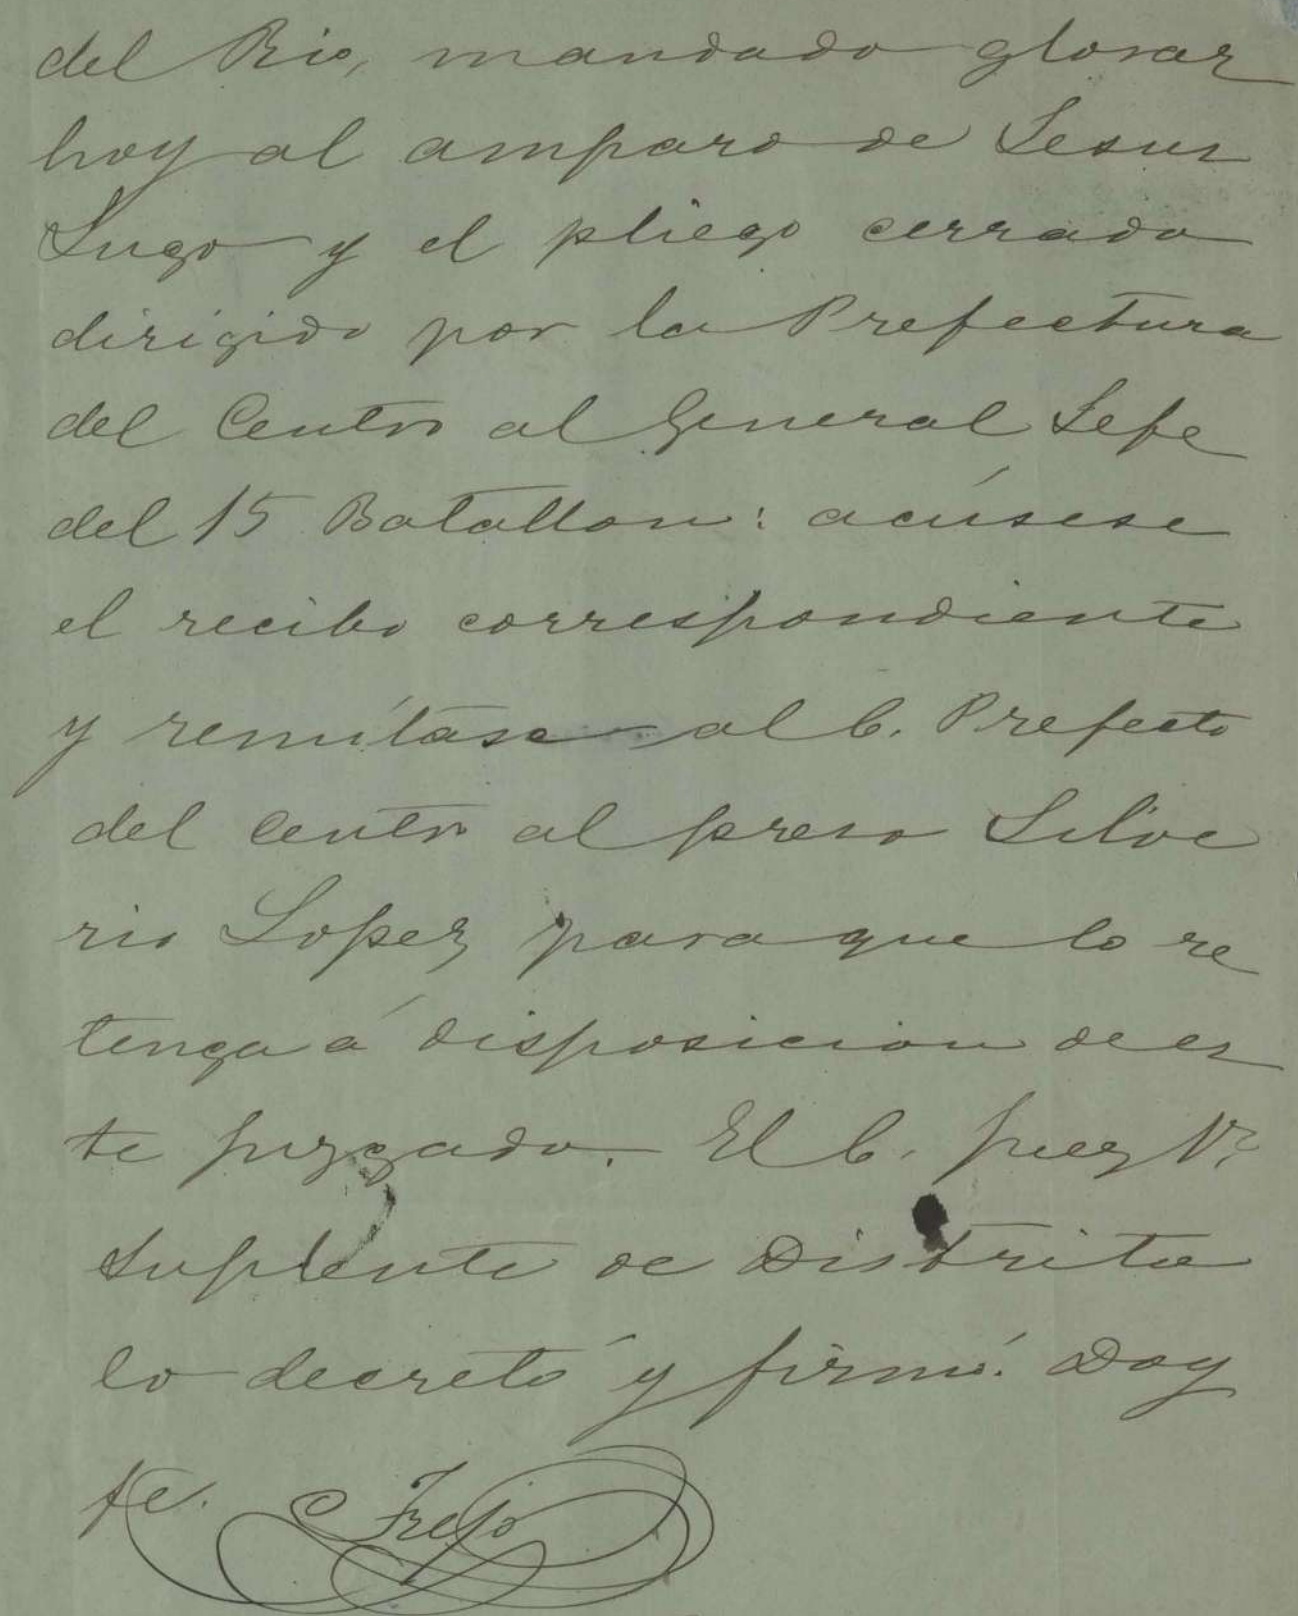 del Rio, mandado glosar
hoy al amparo de Jesus
Lugo y el pliego cerrado
dirigido por la Prefectura
del Centro al General Jefe
del 15 Batallon: acúsese
el recibo correspondiente
y remítase al C. Prefecto
del Centro al preso Silve
rio Lopez para que lo re
tenga á disposicion de es
te juzgado. El C. Juez
Suplente de Distrito
lo decretó y firmó. Doy
fe. Trejo